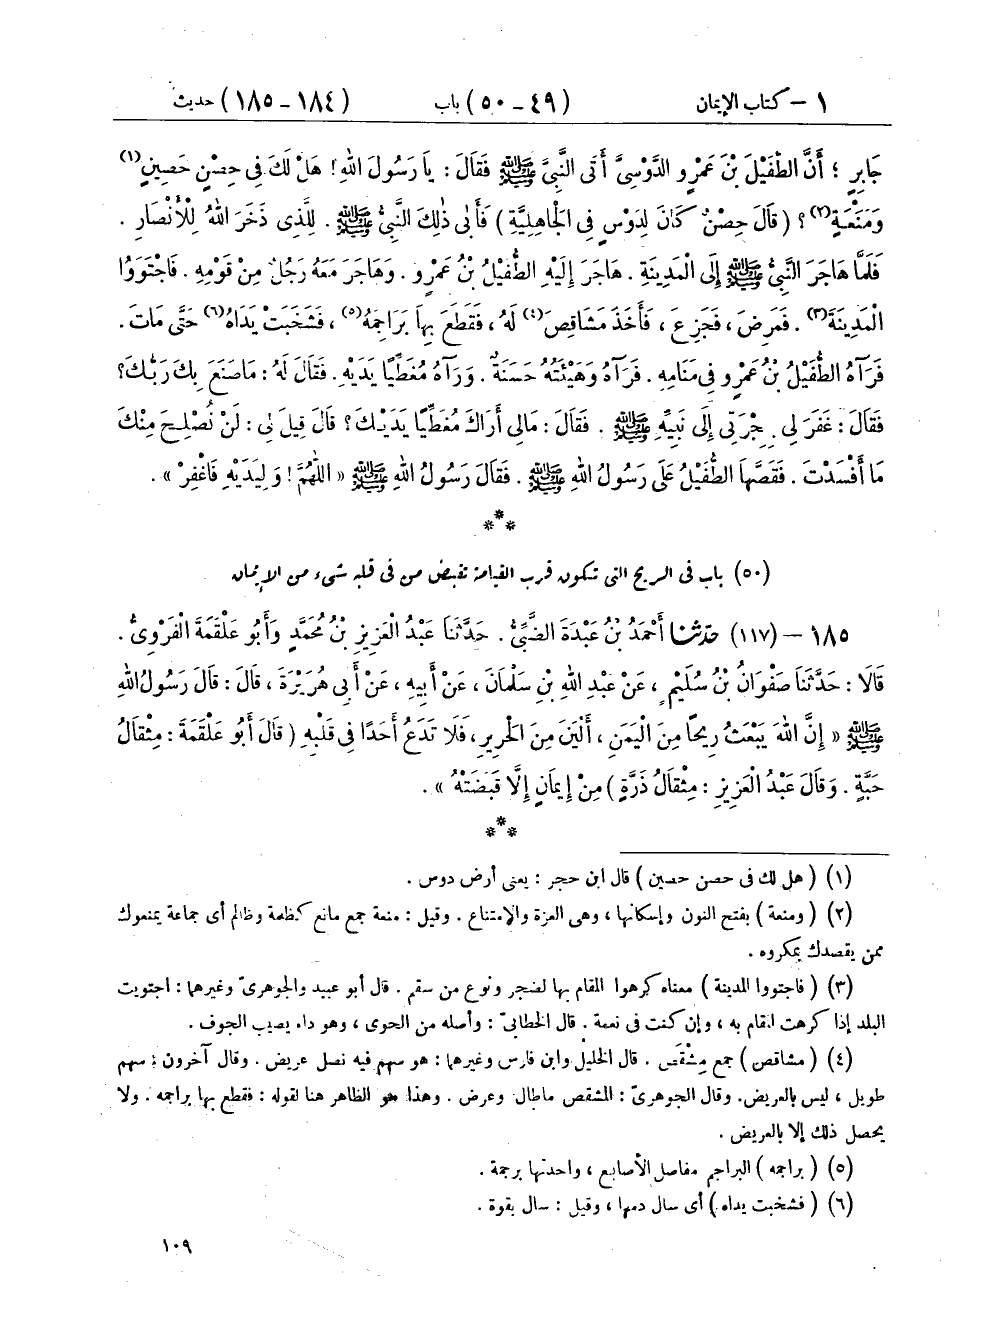 ١ – كتاب الإيمان (٤٩ – ٥٠) باب (١٨٤ – ١٨٥) حديث
جَابِرٍ ؛ أَنَّ الطُّفَيْلَ بْنَ عَمْرٍو الدَّوْسِىَّ أَتَى النَّبِىَّ ﷺ فَقَالَ : يَا رَسُولَ اللهِ! هَلْ لَكَ فِى حِصْنٍ حَصِينٍ(١)
وَمَنَعَةٍ(٢) ؟ ( قَالَ حِصْنٌ كَانَ لِدَوْسٍ فِى الْجَاهِلِيَّةِ ) فَأَبَى ذٰلِكَ النَّبِىُّ ﷺ . لِلَّذِى ذَخَرَ اللهُ لِلْأَنْصَارِ .
فَلَمَّا هَاجَرَ النَّبِىُّ ﷺ إِلَى الْمَدِينَةِ . هَاجَرَ إِلَيْهِ الطُّفَيْلُ بْنُ عَمْرٍو . وَهَاجَرَ مَعَهُ رَجُلٌ مِنْ قَوْمِهِ . فَاجْتَوَوُا
الْمَدِينَةَ(٣) . فَمَرِضَ ، فَجَزِعَ ، فَأَخَذَ مَشَاقِصَ(٤) لَهُ ، فَقَطَعَ بِهَا بَرَاجِمَهُ(٥) ، فَشَخَبَتْ يَدَاهُ(٦) حَتَّى مَاتَ .
فَرَآهُ الطُّفَيْلُ بْنُ عَمْرٍو فِى مَنَامِهِ . فَرَآهُ وَهَيْئَتُهُ حَسَنَةٌ . وَرَآهُ مُغَطِّيًا يَدَيْهِ . فَقَالَ لَهُ : مَا صَنَعَ بِكَ رَبُّكَ؟
فَقَالَ : غَفَرَ لِى بِهِجْرَتِى إِلَى نَبِيِّهِ ﷺ . فَقَالَ : مَالِى أَرَاكَ مُغَطِّيًا يَدَيْكَ؟ قَالَ قِيلَ لِى : لَنْ نُصْلِحَ مِنْكَ
مَا أَفْسَدْتَ . فَقَصَّهَا الطُّفَيْلُ عَلَى رَسُولِ اللهِ ﷺ . فَقَالَ رَسُولُ اللهِ ﷺ « اللّٰهُمَّ! وَلِيَدَيْهِ فَاغْفِرْ » .
***
(٥٠) باب فى الريح التى تكون قرب القيامة تقبض من فى قلبه شىء من الإيمان
١٨٥ – (١١٧) حَدَّثَنَا أَحْمَدُ بْنُ عَبْدَةَ الضَّبِّىُّ . حَدَّثَنَا عَبْدُ الْعَزِيزِ بْنُ مُحَمَّدٍ وَأَبُو عَلْقَمَةَ الْفَرْوِىُّ .
قَالَا : حَدَّثَنَا صَفْوَانُ بْنُ سُلَيْمٍ ، عَنْ عَبْدِ اللهِ بْنِ سَلْمَانَ ، عَنْ أَبِيهِ ، عَنْ أَبِى هُرَيْرَةَ ، قَالَ : قَالَ رَسُولُ اللهِ
ﷺ « إِنَّ اللهَ يَبْعَثُ رِيحًا مِنَ الْيَمَنِ ، أَلْيَنَ مِنَ الْحَرِيرِ ، فَلَا تَدَعُ أَحَدًا فِى قَلْبِهِ ( قَالَ أَبُو عَلْقَمَةَ : مِثْقَالُ
حَبَّةٍ . وَقَالَ عَبْدُ الْعَزِيزِ : مِثْقَالُ ذَرَّةٍ ) مِنْ إِيمَانٍ إِلَّا قَبَضَتْهُ » .
***
(١) ( هل لك فى حصن حصين ) قال ابن حجر : يعنى أرض دوس .
(٢) ( ومنعة ) بفتح النون وإسكانها ، وهى العزة والامتناع . وقيل : منعة جمع مانع كظمة وظالم أى جماعة يمنعوك
ممن يقصدك بمكروه .
(٣) ( فاجتووا المدينة ) معناه كرهوا المقام بها لضجر ونوع من سقم . قال أبو عبيد والجوهرىّ وغيرهما : اجتويت
البلد إذا كرهت المقام به ، وإن كنت فى نعمة . قال الخطابىّ : وأصله من الجوى ، وهو داء يصيب الجوف .
(٤) ( مشاقص ) جمع مِشْقَص . قال الخليل وابن فارس وغيرهما : هو سهم فيه نصل عريض . وقال آخرون : سهم
طويل ، ليس بالعريض. وقال الجوهرىّ : المشقص ماطال وعرض . وهذا هو الظاهر هنا لقوله : فقطع بها براجمه . ولا
يحصل ذلك إلا بالعريض .
(٥) ( براجمه ) البراجم مفاصل الأصابع ، واحدتها برجمة .
(٦) ( فشخبت يداه ) أى سال دمها ، وقيل : سال بقوة .
١٠٩